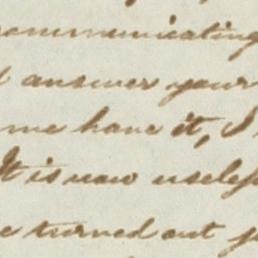 communicating
answer your
me have it, I
It is now useless
turned out